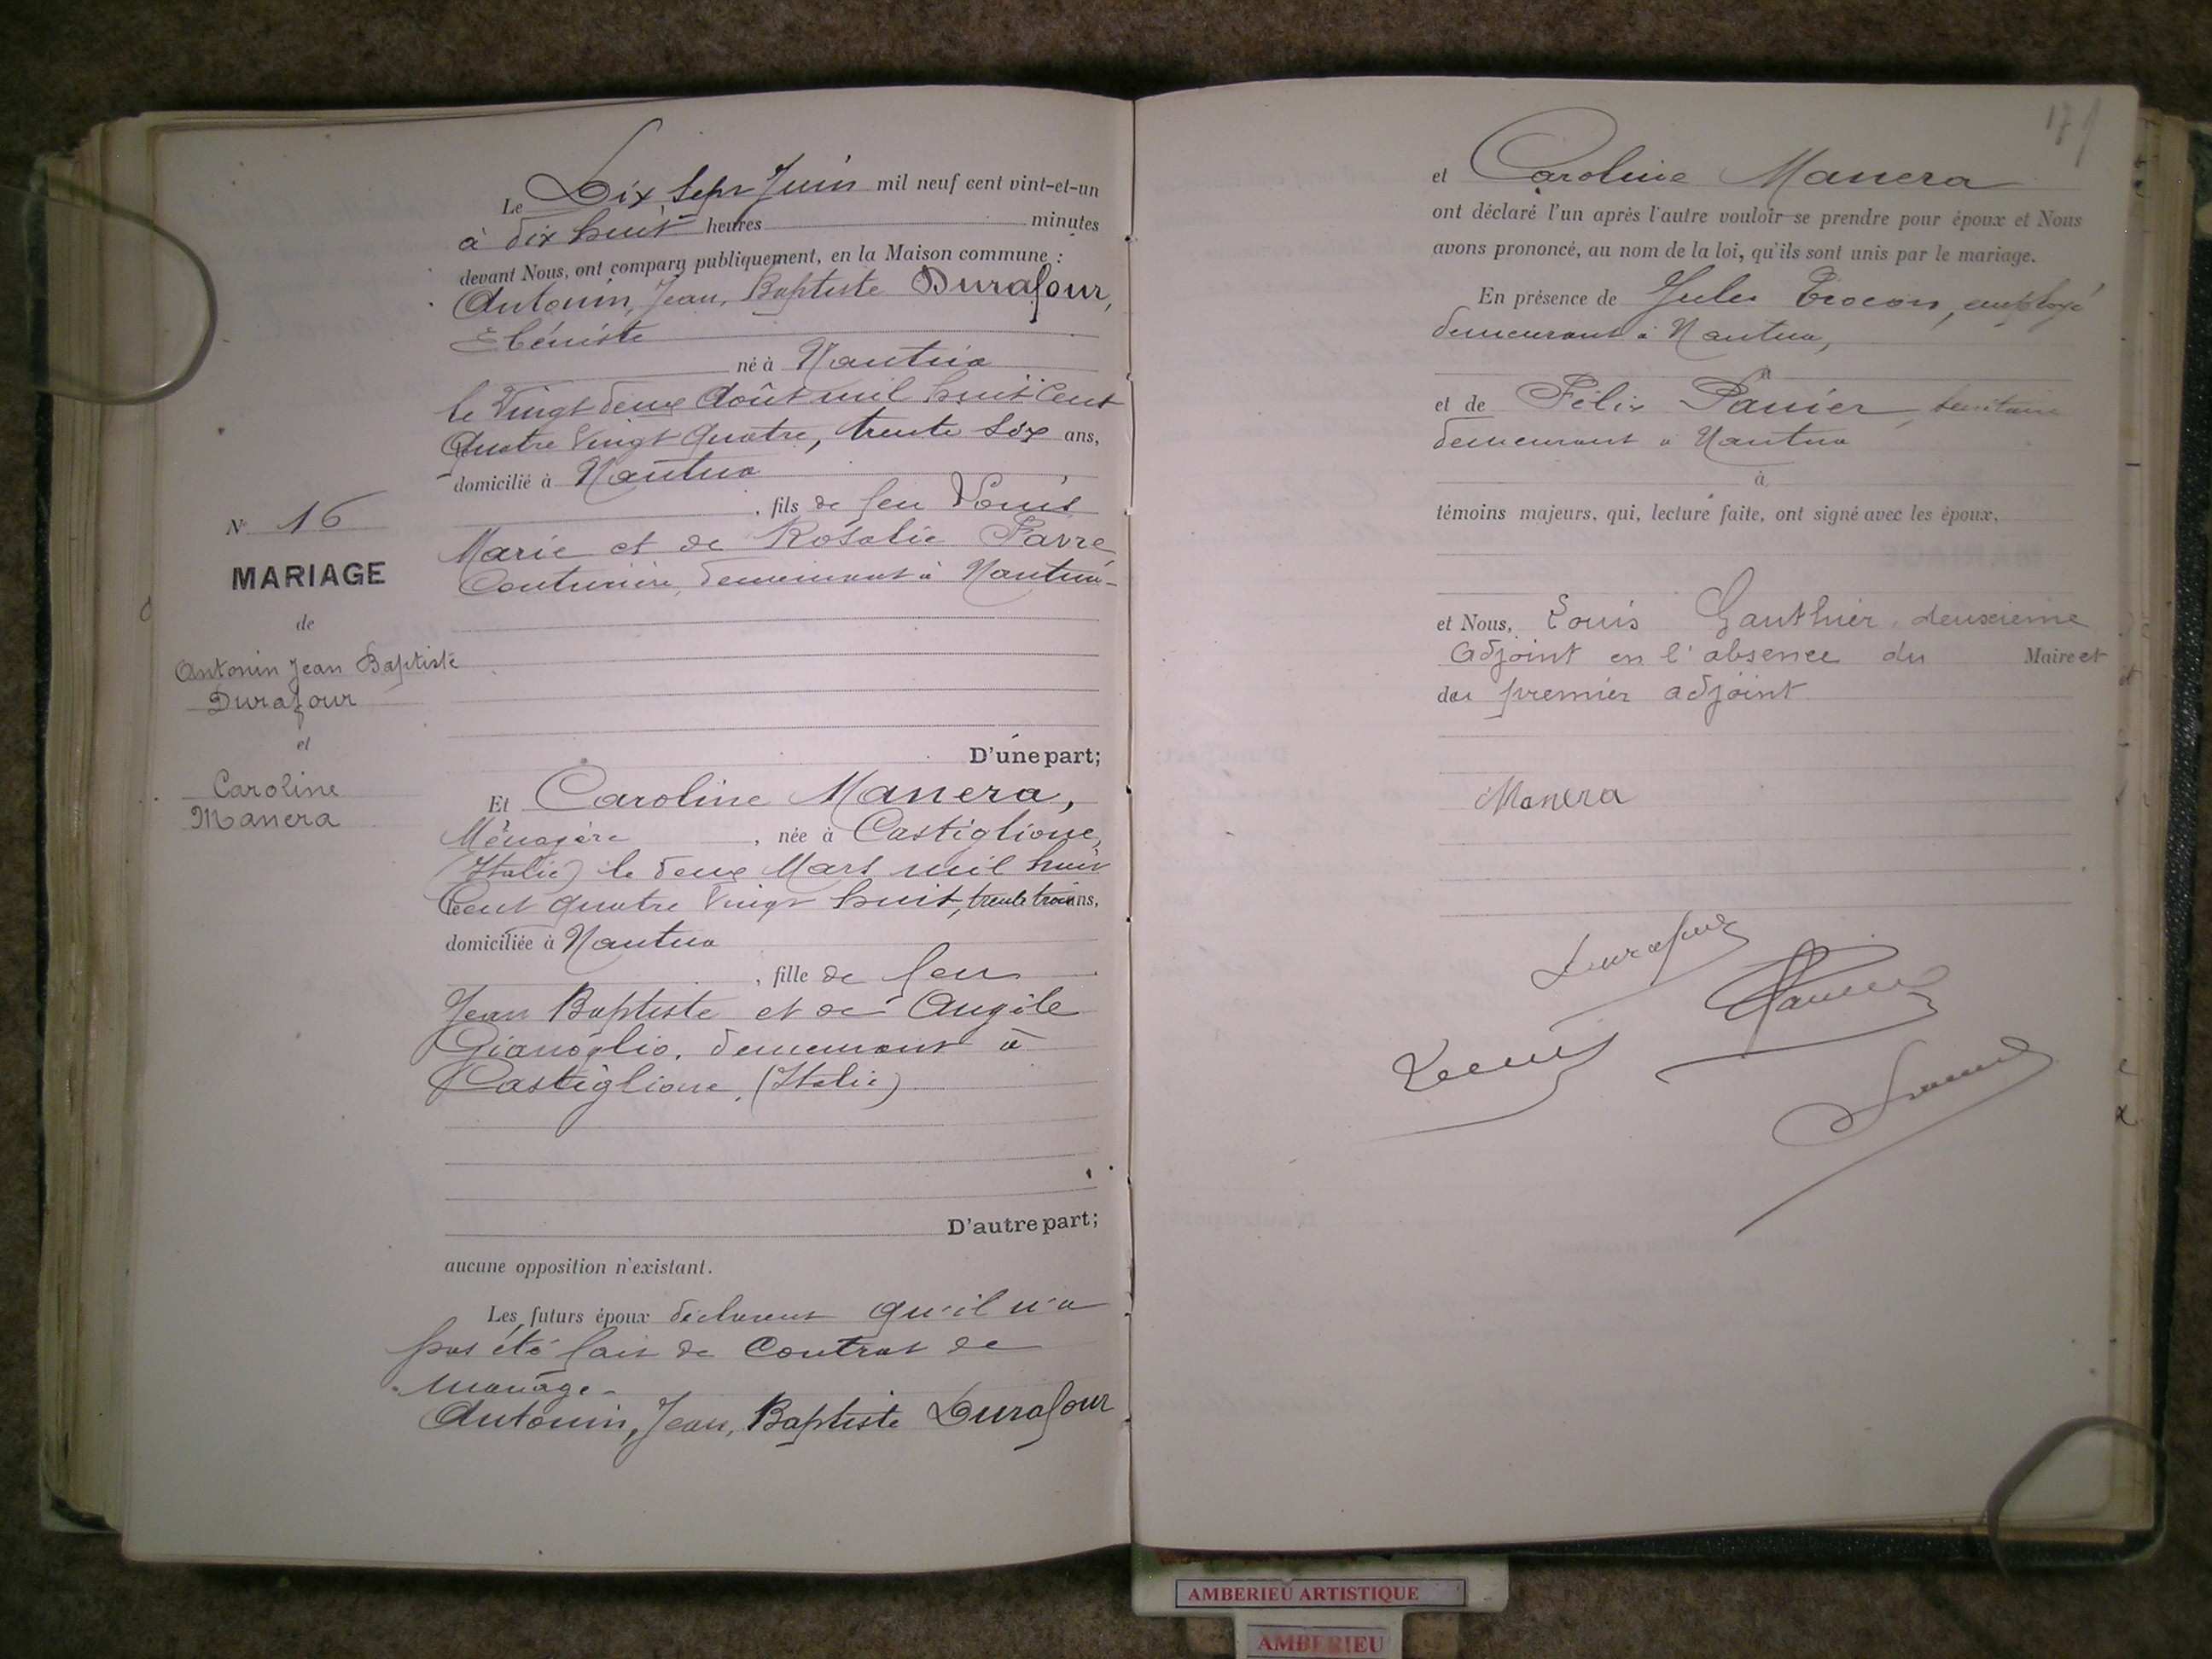 Le Dix Sept Juin mil neuf cent vint-et-un
à dix huit heures minutes
devant Nous, ont comparu publiquement, en la Maison commune :
Antonin, Jean, Baptiste Durafour,
Ebéniste
né à Nantua
le Vingt deux Août mil huit Cent
Quatre Vingt Quatre, trente Six ans,
domicilié à Nantua
, fils de feu Louis
Marie et de Rosalie Favre
Couturière, demeurant à Nantua-
N° 16
MARIAGE
de
Antonin Jean Baptiste
Durafour
et
Caroline
Manera
D'une part;
Et Caroline Manera,
Ménagère , née à Castiglione,
(Italie) le deux Mars mil huit
Cent quatre Vingt huit, trente trois ans,
domiciliée à Nantua
, fille de feu
Jean Baptiste et de Angèle
Gianoglio, demeurant à
Castiglione, (Italie)
D'autre part;
aucune opposition n'existant.
Les futurs époux déclarent qu'il n'a
pas été fait de Contrat de
mariage-
Antonin, Jean, Baptiste Durafour
179
et Caroline Manera
ont déclaré l'un après l'autre vouloir se prendre pour époux et Nous
avons prononcé, au nom de la loi, qu'ils sont unis par le mariage.
En présence de Jules employé
demeurant à Nantua,
à
et de Félix Panier
demeurant à Nantua
à
témoins majeurs, qui, lecture faite, ont signé avec les époux,
et Nous, Louis Gauthier, deuxième
Adjoint en l'absence du Maire et
du premier adjoint
Manera
Durafour
Panier
AMBERIEU ARTISTIQUE
AMBERIEU